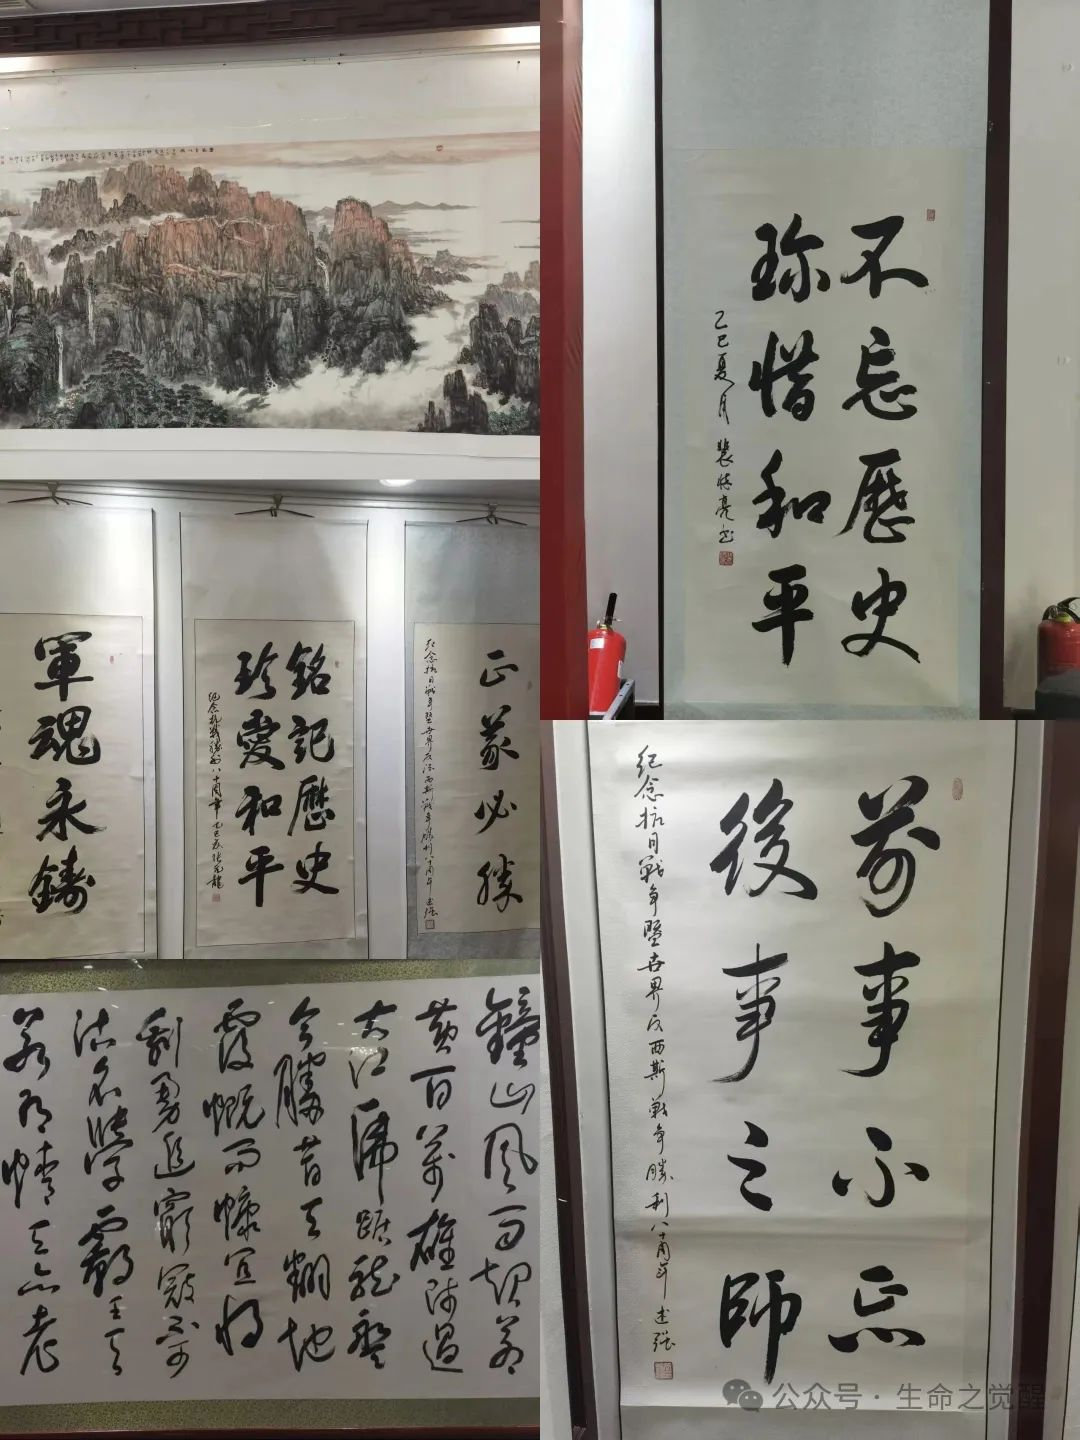 不忘歷史
珍惜和平
乙巳夏月
軍魂永鑄
銘記歷史
珍愛和平
紀念抗戰勝利八十周年 乙巳
正義必勝
纪念抗日戰争暨世界反法西斯戰争勝利八十周年
鐘山風雨起蒼
黃百萬雄師過
大江虎踞龍盤
今勝昔天翻地
覆慨而慷宜將
剩勇追窮寇不可
沽名學霸王天
若有情天亦老
前事不忘
後事之師
纪念抗日戰争暨世界反西斯戰争勝利八十周年
公众号·生命之觉醒